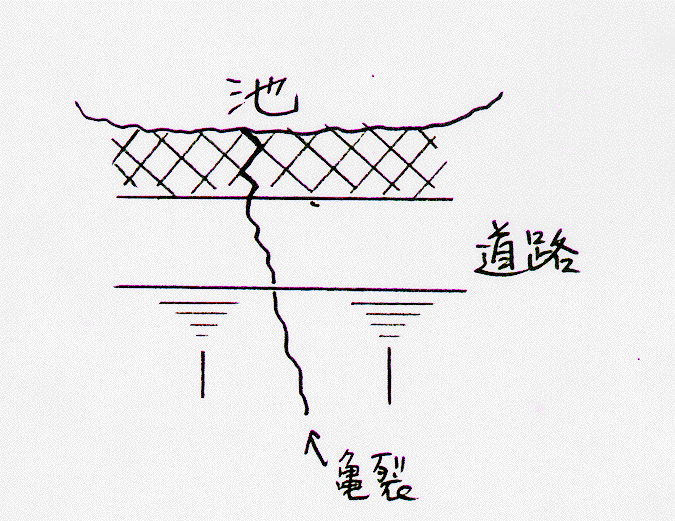 池
道路
亀裂